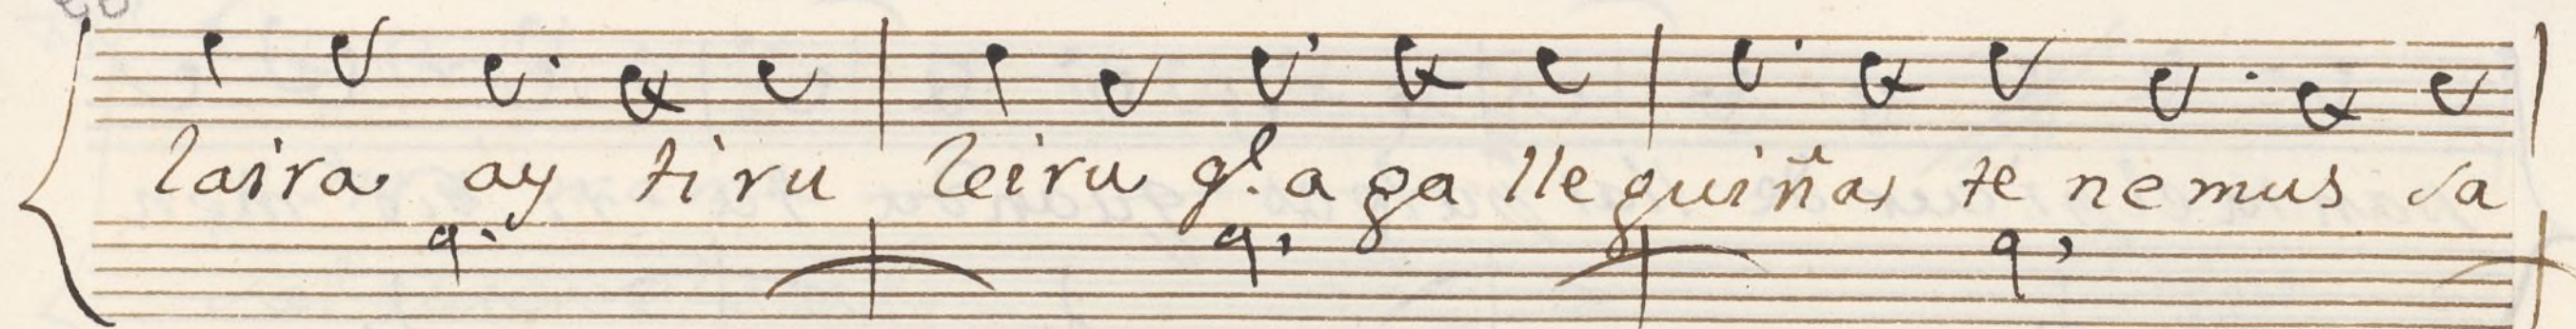 laira ay ti ru leiru gl. a ga lle guiñas te ne mus sa